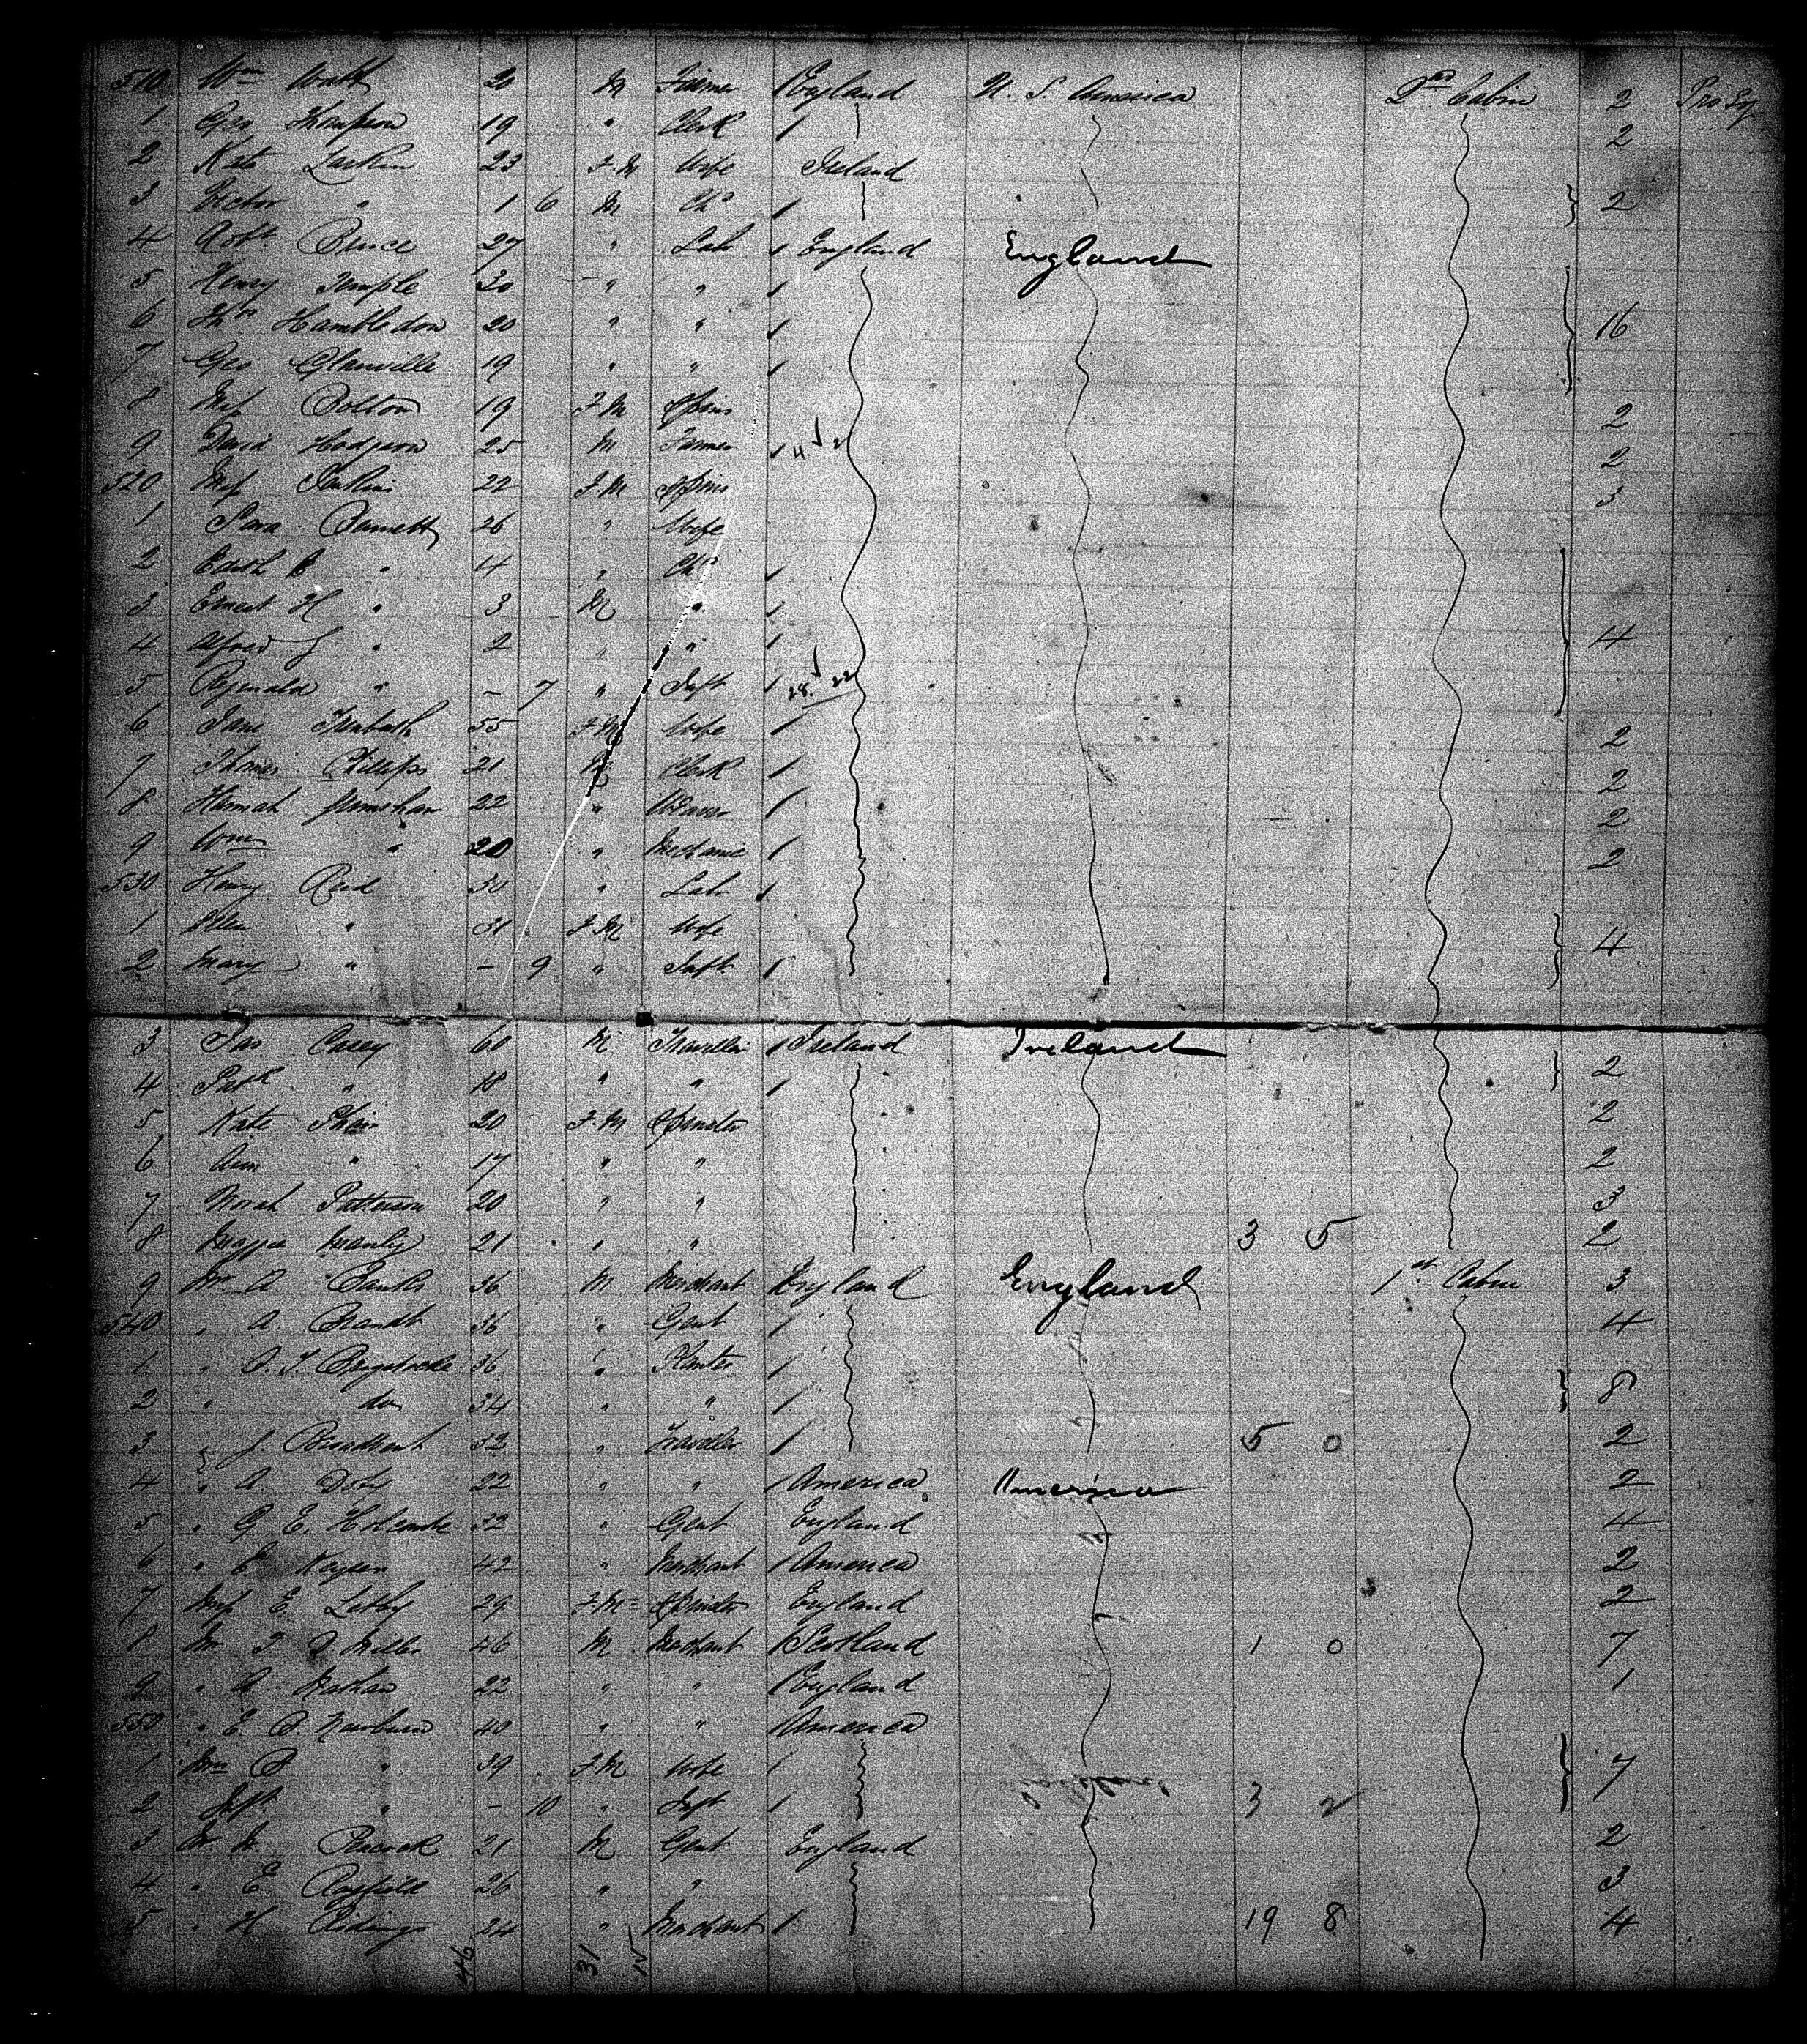 510 Wm Watt 20 M Farmer England U. S. America 2nd Cabin 2 Pro Sy
1 Geo Thompson 19 " Clerk 2
2 Kate Larkin 23 F. M Wife Ireland
3 Victor " 1 6 M Chd 2
4 Robt Bruce 27 " Lab England England
5 Henry Temple 30 " "
6 Ths Hambledon 20 " " 16
7 Geo Glanville 19 " "
8 Miss Bolton 19 F M Spins 2
9 David Hodgson 25 M Farmer 4 2 2
520 Miss Jenkins 22 F M Spins 3
1 Sara Barnett 26 " Wife
2 Edith " 4 " Chd
3 Ernest H " 3 M "
4 Alfred J " 2 " " 4
5 Reginald " - 7 " Inft 28 22
6 Jane 55 F M Wife 2
7 Thomas Phillips 21 M Clerk 2
8 Hannah 22 " Weaver 2
9 Wm " 20 " Mechanic 2
530 Henry Reid 30 " Lab
1 Ellen " 31 F M Wife 4
2 Mary " - 9 " Inft
3 Jas Casey 60 M Traveller Ireland Ireland 2
4 Patk " 18 " "
5 Kate 20 F. M Spinster 2
6 Ann " 17 " " 2
7 Norah Patterson 20 " " 3
8 Maggie Manly 21 " " 3 5 2
9 Mr A. Banks 36 M Merchant England England 1st Cabin 3
540 " A. Brandt 36 " Gent 4
1 " 36 " Planter
2 " do 34 " " 8
3 " J. Broadbent 32 " Traveller 5 0 2
4 " A Doty 22 " " America America 2
5 " G. E. Holcombe 32 " Gent England 4
6 " E Keyser 42 " Merchant America 2
7 Miss E. Libby 29 F. M Spinster England 2
8 Mr Miller 46 M Merchant Scotland 1 0 7
9 " Nathan 22 " " England 1
550 " E. 40 " " America
1 Mrs B " 39 F. M Wife 7
2 Inft " - 10 " Inft 3 2
3 Mr W. Peacock 21 M Gent England 2
4 " E. Rayfield 26 " " 3
5 " H Ridings 24 " Merchant 19 8 4
46 31 12